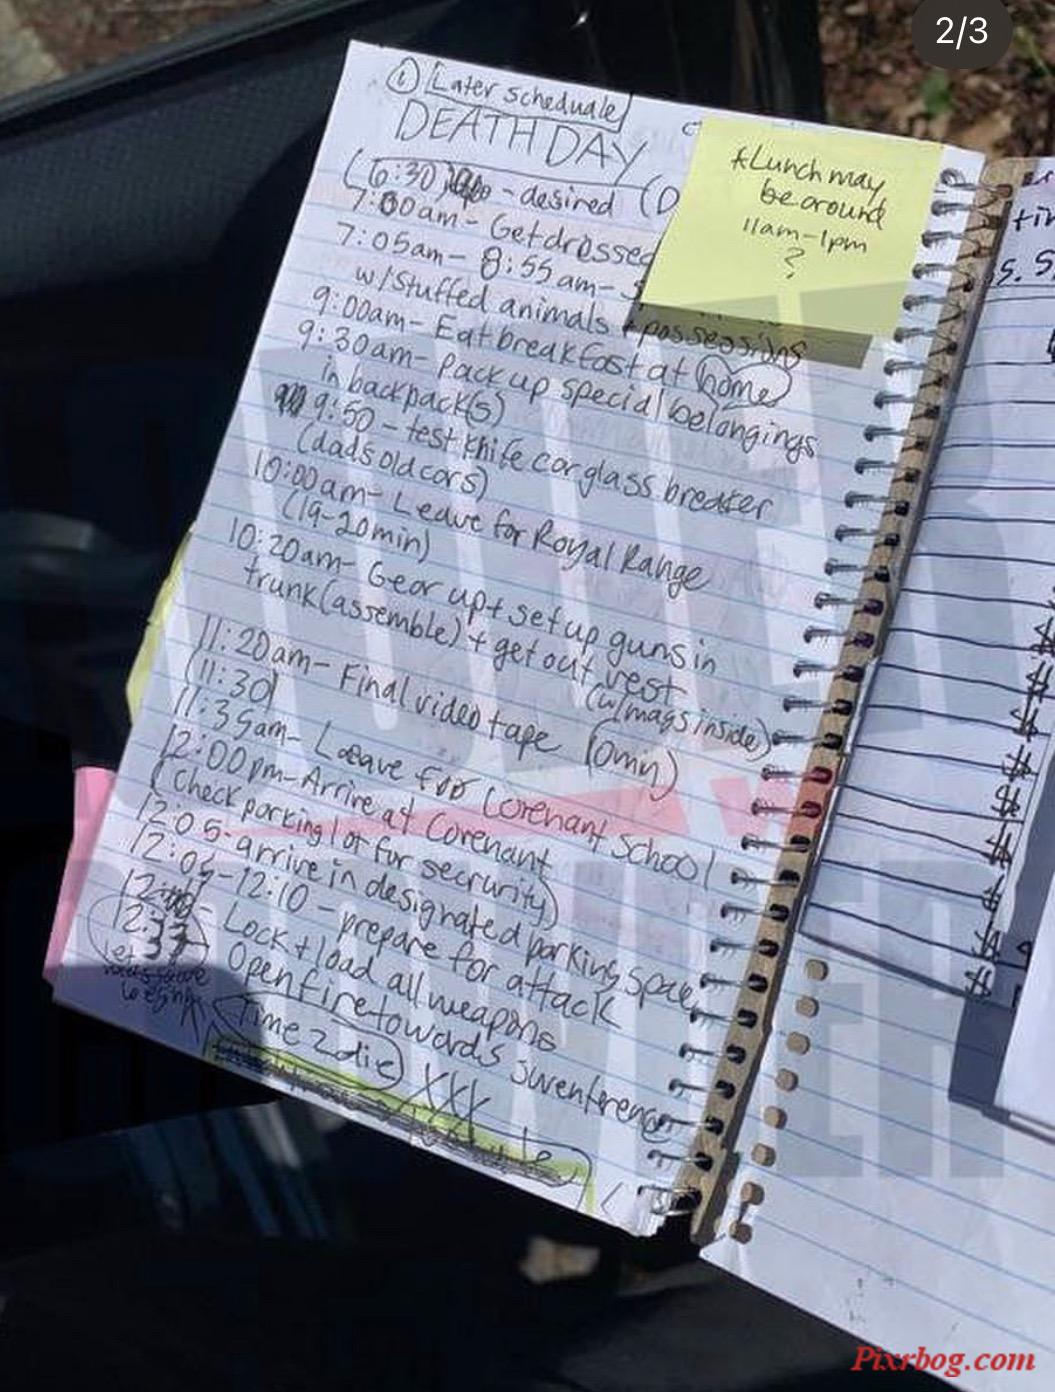 2/3
① Later scheduale
DEATH DAY
(6:30) - desired (D
7:00am - Get dressed
7:05am - 8:55am - S
w/ stuffed animals + possessions
9:00am - Eat breakfast at home
9:30am - Pack up special belongings
in backpack(s)
9:50 - test knife car glass breaker
(dads old cars)
10:00am - Leave for Royal Range
(19-20 min)
10:20am - Gear up + set up guns in
trunk (assemble) + get out vest
(w/ mags inside)
11:20am - Final video tape (0min)
(11:30)
11:35am - Leave for Covenant School
12:00pm - Arrive at Covenant
(Check parking lot for secrurity)
12:05 - arrive in designated parking space
12:05-12:10 - prepare for attack
Lock + load all weapons
12:33 Open fire towards
Time 2 die) XXX
*Lunch may
be around
11am-1pm
?
Pixrbog.com